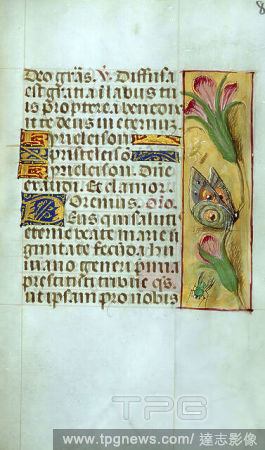 8
Deo grās. V. Diffusa
est gratia ī labiis tu
is propterea benedix
it te deus in eternum
Kyrieleison
Xpristeleiso
Kyrieleison. Dne
exaudi. Et clamor.
Oremus. Oīo.
Deus qui salutis
eterne beate marie vir
ginitate fecūda hu
mano generi p̄mia
prestitisti tribue q̄s.
ut ipsam pro nobis
TPG
www.tpgnews.com / 達志影像